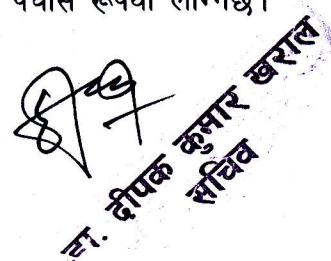 पचास रूपैयाँ लाग्नेछ।
डा. दीपक कुमार खराल
सचिव